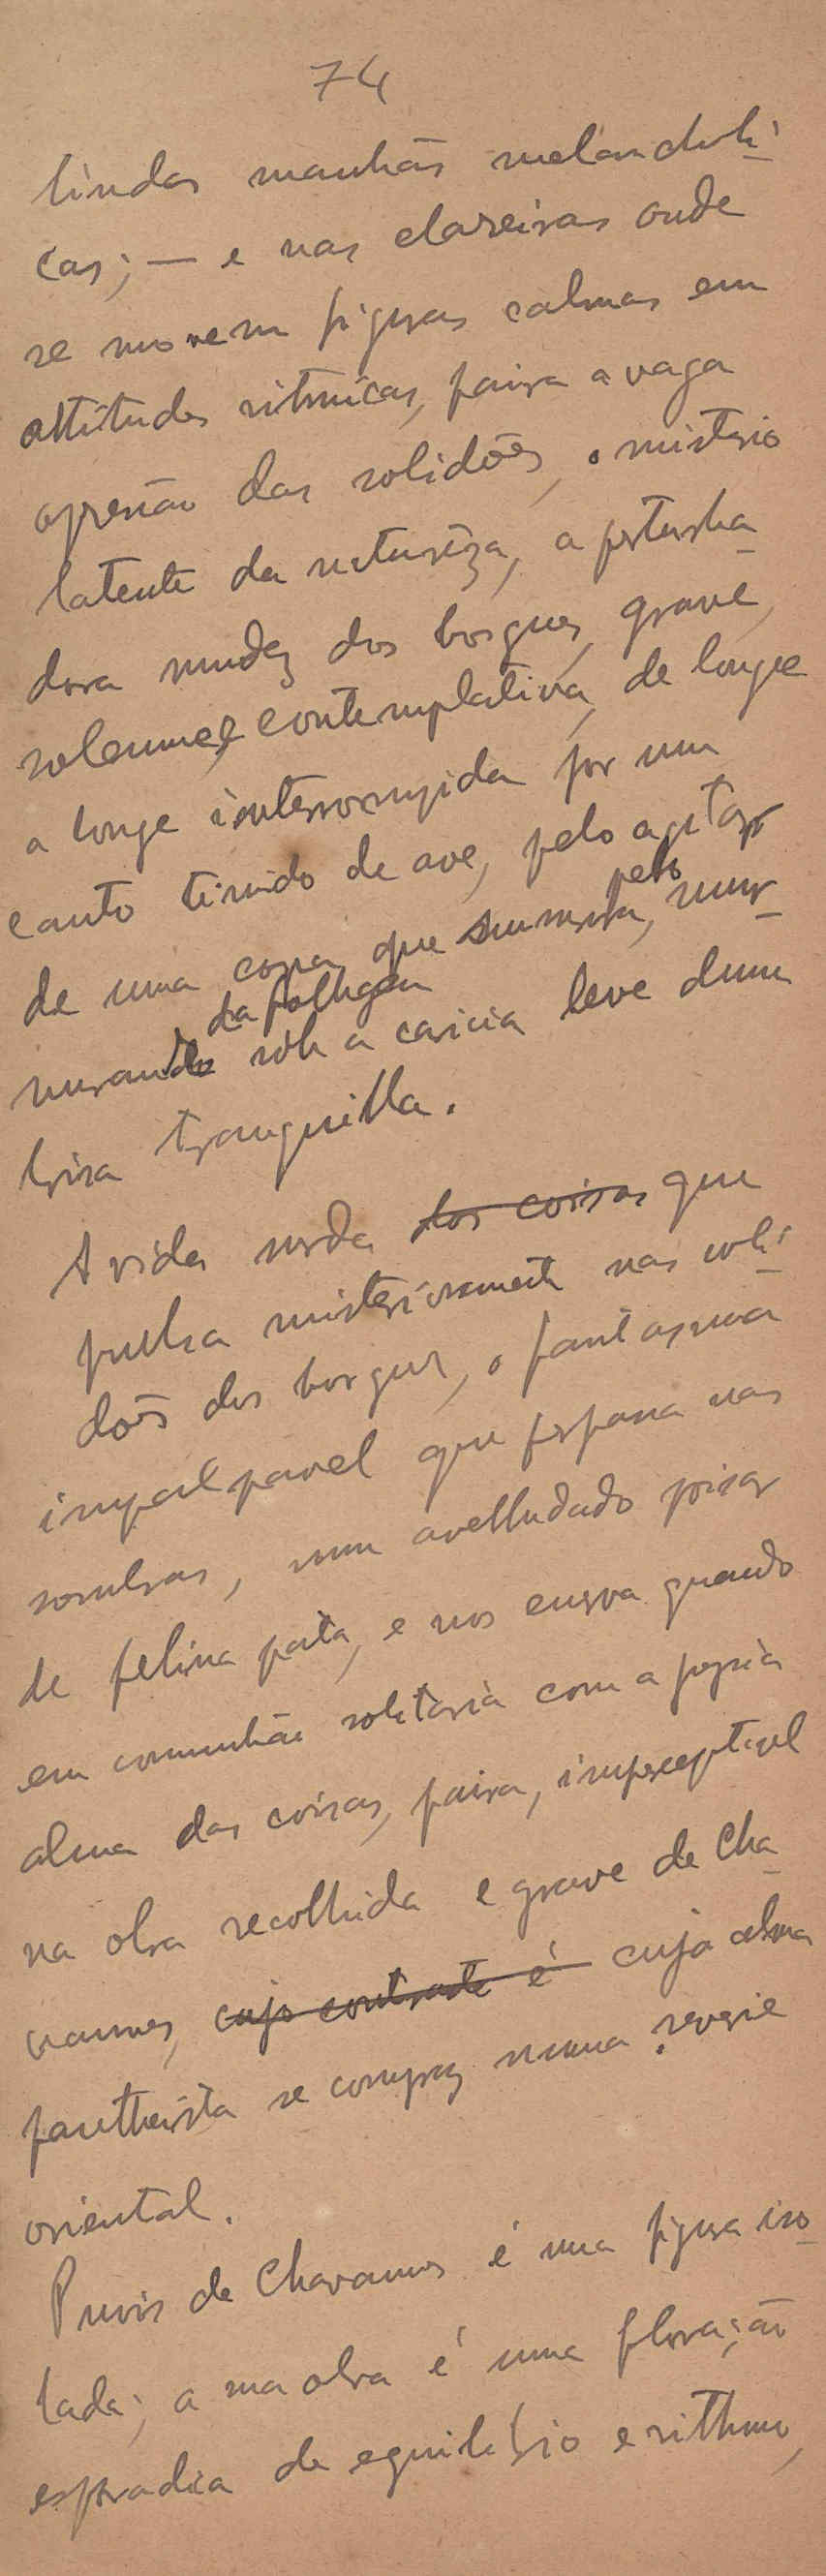 74
lindas manhãs melancholi-
cas; — e nas clareiras onde
se movem figuras calmas em
attitudes ritmicas, paira a vaga
opressão das solidões, o misterio
latente da natureza, a perturba-
dora mudez dos bosques, grave,
solemne e contemplativa, de longe
a longe interrompida por um
canto timido de ave, pelo agitar
de uma copa que murmura, pelo mur-
murar da folhagem sob a caricia leve dum
brisa tranquilla.
A vida surda das coisas que
pulsa misteriosamente nas soli-
dões dos bosques, o fantasma
impalpavel que perpassa nas
sombras, num avelludado pisar
de felina pata, e nos enerva quando
em comunhão solitaria com a propria
alma das coisas, paira, imperceptivel
na obra recolhida e grave de Cha-
vannes, cujo contraste é cuja alma
pantheista se compraz numa reverie
oriental.
Puvis de Chavannes é uma figura iso-
lada; a sua obra é uma floração
esporadica de equilibrio e rithmo,